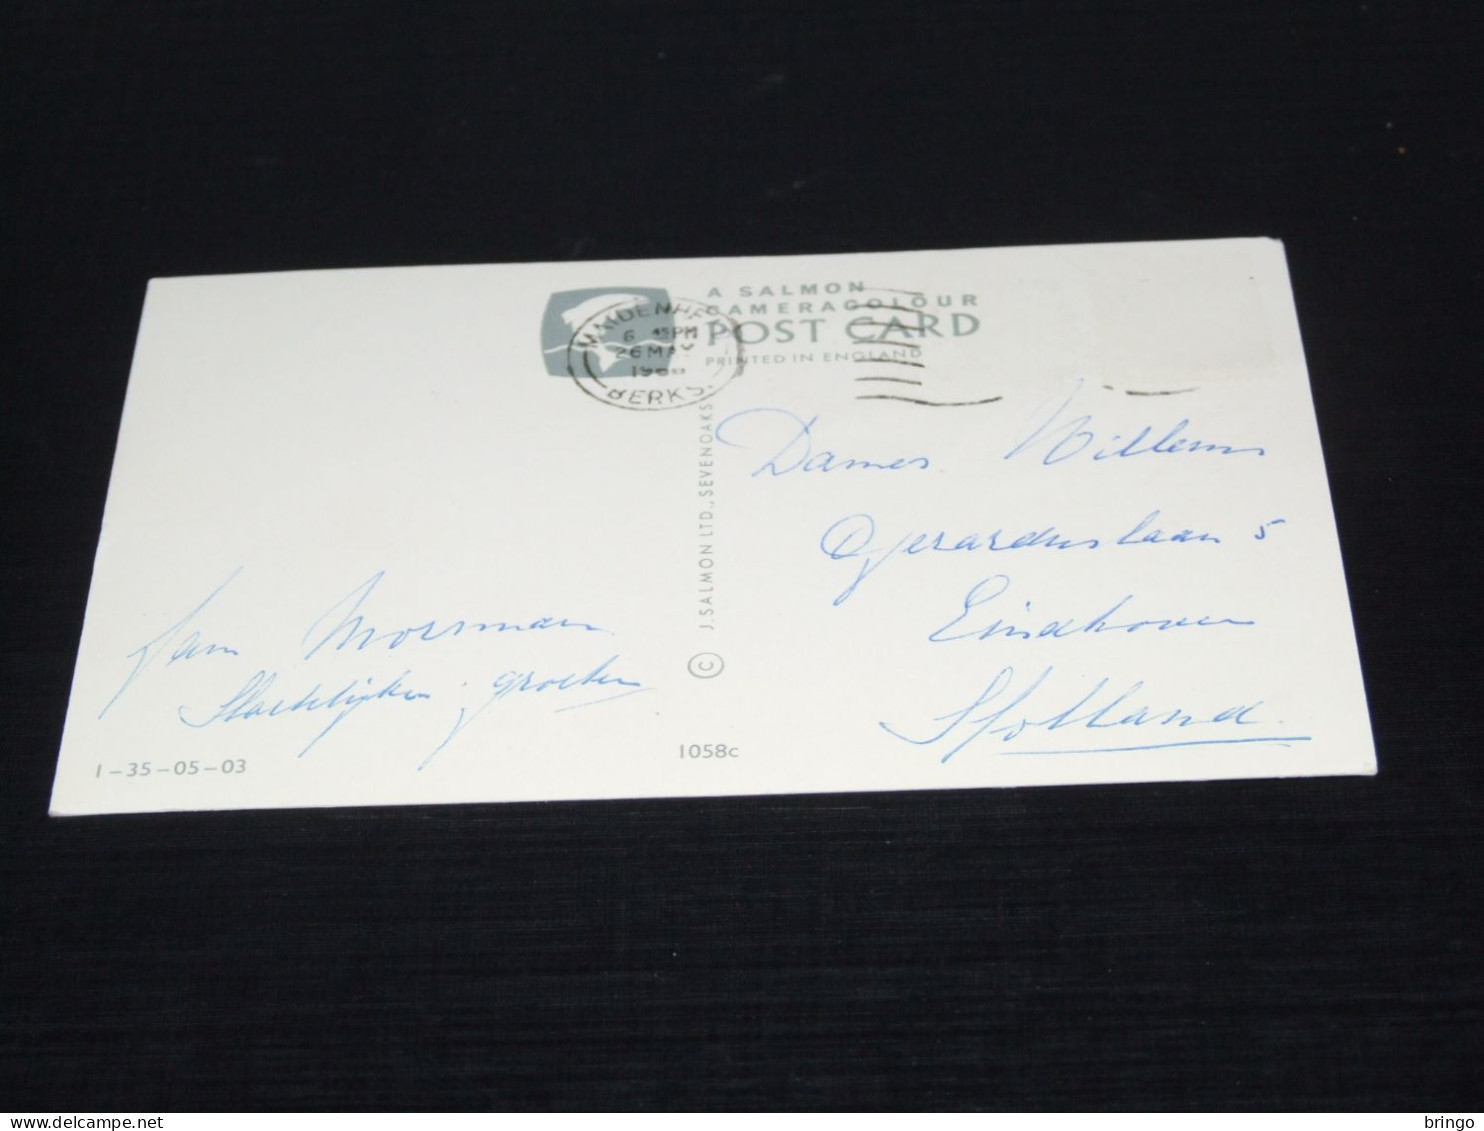 A SALMON
CAMERACOLOUR
POST CARD
PRINTED IN ENGLAND
MAIDENHE
6 45PM
26 MAY
BERKS.
© J. SALMON LTD., SEVENOAKS
Dames Willems
Gerarduslaan 5
Eindhoven
Holland
Fam Moorman
groeten
1-35-05-03
1058c
bringo